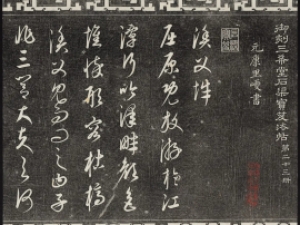 御刻三希堂石渠寶笈法帖第二十三冊
元康里巎書
漁父辭
屈原既放游於江
潭行吟澤畔顏色
憔悴形容枯槁
漁父見而問之曰子
非三閭大夫與何